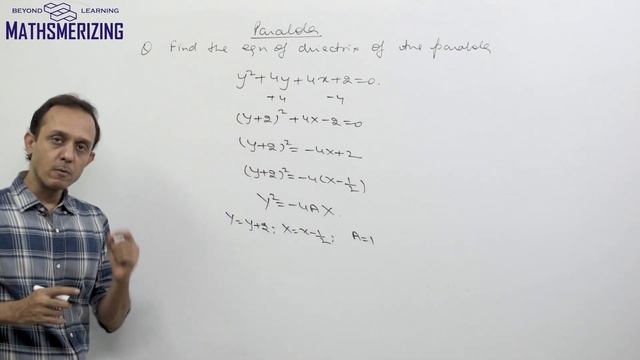 BEYOND LEARNING
MATHSMERIZING
Parabola
Q Find the eqn of directrix of the parabola
y²+4y+4x+2=0.
+4 -4
(y+2)²+4x-2=0
(y+2)²=-4x+2
(y+2)²=-4(x-1/2)
Y²=-4AX.
Y=y+2; X=x-1/2; A=1